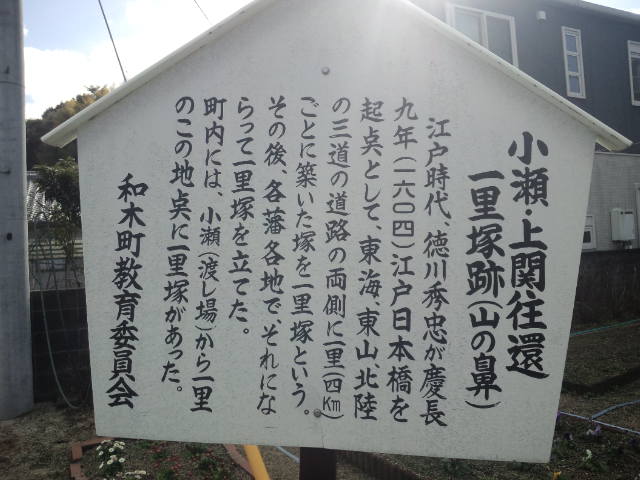 小瀬・上関往還
一里塚跡(山の鼻)
江戸時代、徳川秀忠が慶長
九年(一六〇四)江戸日本橋を
起点として、東海、東山、北陸
の三道の道路の両側に一里(四Km)
ごとに築いた塚を一里塚という。
その後、各藩各地で それにな
らって一里塚を立てた。
町内には、小瀬(渡し場)から一里
のこの地点に一里塚があった。
和木町教育委員会